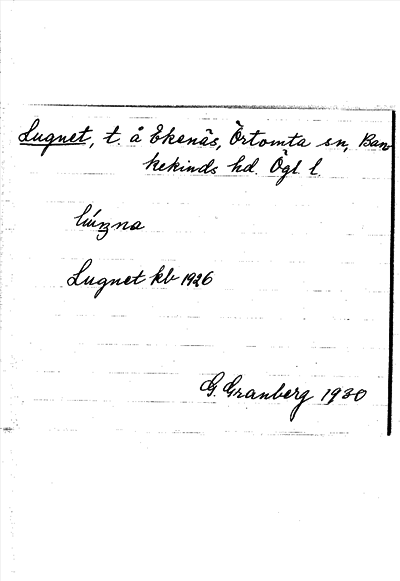 Lugnet, t. å Ekenäs, Örtomta sn, Ban-
kekinds hd. Ögl. l.
Lugnet kb 1926
G. Granberg 1930